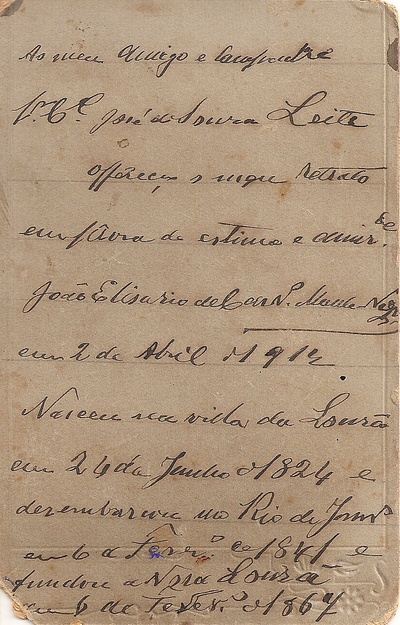 Ao meu amigo e Compadre
José de Souza Leite
offereço o meu retrato
em prova de estima e amiz.de
João Elisario de Carv.º Monte-Negro
em 2 de Abril d 1912.
Nasceu na villa da Louzã
em 24 de Junho d 1824 e
desembarcou no Rio de Janr.º
em 6 de Fever.º de 1841 e
fundou a Nova Louzã
em 6 de Fever.º d 1867